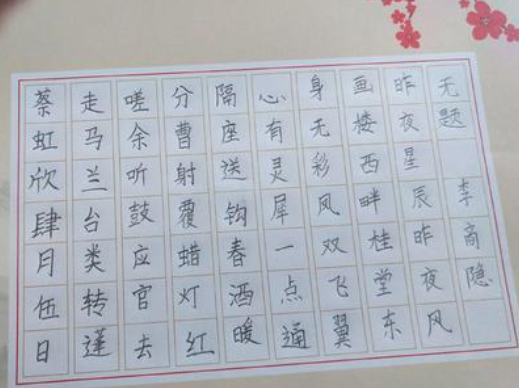 无题 李商隐
昨夜星辰昨夜风
画楼西畔桂堂东
身无彩凤双飞翼
心有灵犀一点通
隔座送钩春酒暖
分曹射覆蜡灯红
嗟余听鼓应官去
走马兰台类转蓬
蔡虹欣肆月伍日